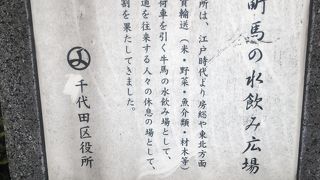 馬の水飲み広場
所は、江戸時代より房総や東北方面
資輸送（米・野菜・魚介類・材木等）
荷車を引く牛馬の水飲み場として、
道を往来する人々の休息の場として、
割を果たしてきました。
千代田区役所